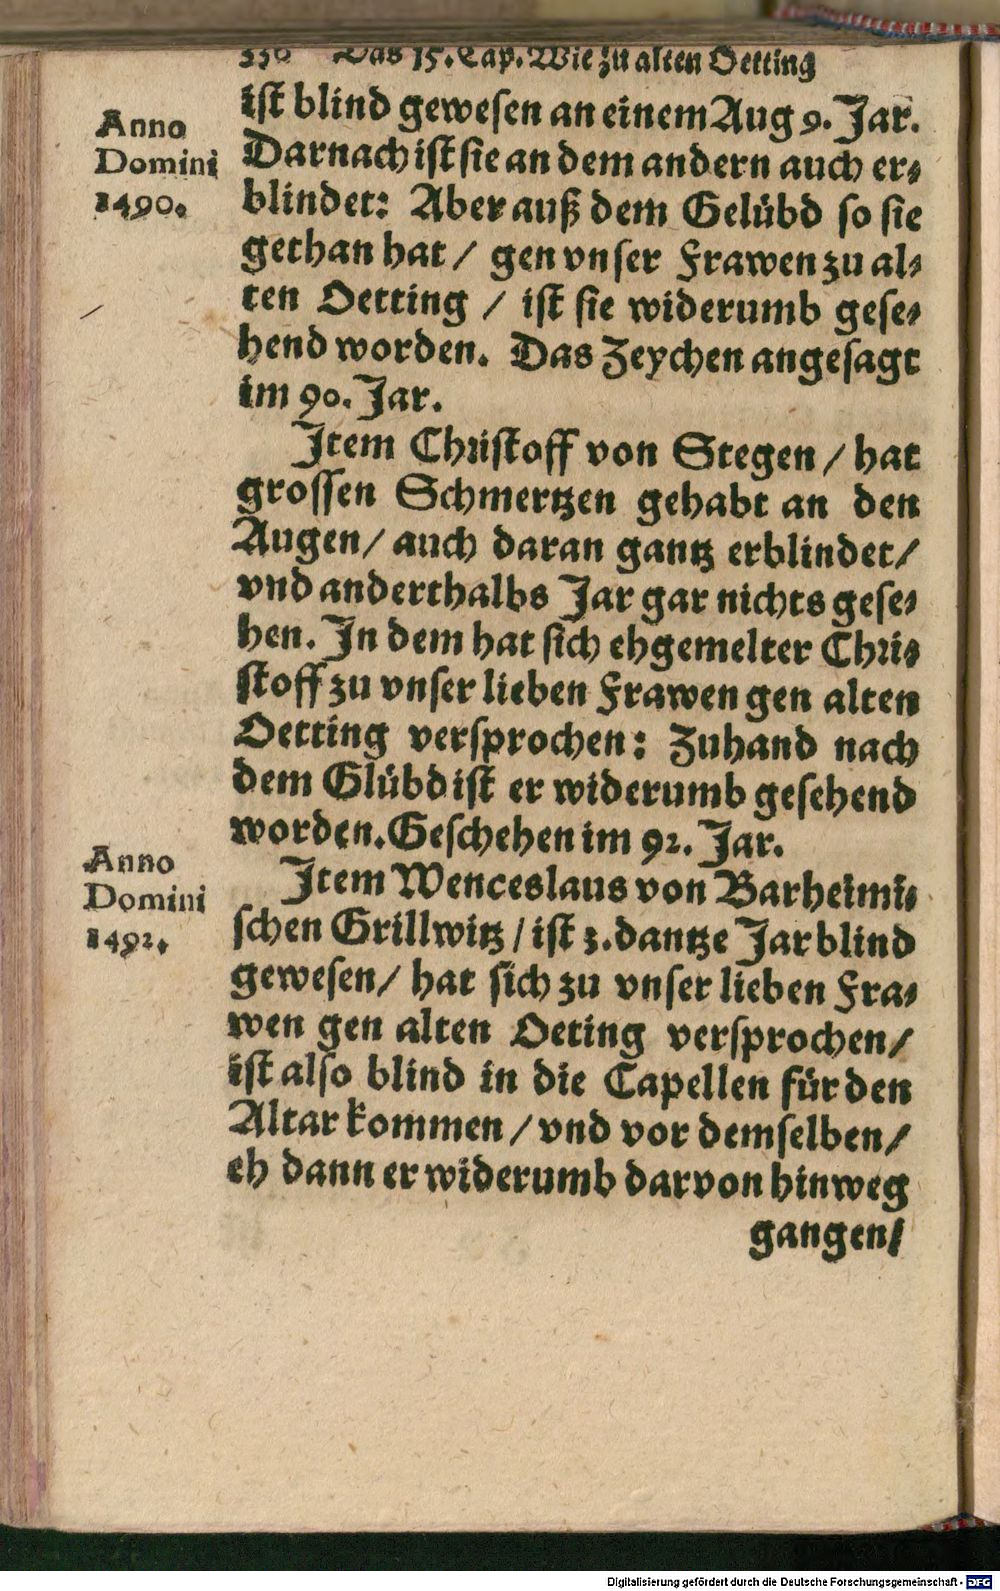 336 Das 15. Cap. Wie zu alten Oetting
ist blind gewesen an einem Aug 9. Jar.
Anno
Domini
1490.
Darnach ist sie an dem andern auch er⸗
blindet: Aber auß dem Gelübd so sie
gethan hat / gen vnser Frawen zu al⸗
ten Oetting / ist sie widerumb gese⸗
hend worden. Das Zeychen angesagt
im 90. Jar.
Item Christoff von Stegen / hat
grossen Schmertzen gehabt an den
Augen / auch daran gantz erblindet /
vnd anderthalbs Jar gar nichts gese⸗
hen. In dem hat sich ehgemelter Chri⸗
stoff zu vnser lieben Frawen gen alten
Oetting versprochen: Zuhand nach
dem Glübd ist er widerumb gesehend
worden. Geschehen im 92. Jar.
Anno
Domini
1492.
Item Wenceslaus von Barheimi⸗
schen Grillwitz / ist 3. dantze Jar blind
gewesen / hat sich zu vnser lieben Fra⸗
wen gen alten Oeting versprochen /
ist also blind in die Capellen für den
Altar kommen / vnd vor demselben /
eh dann er widerumb darvon hinweg
gangen /
Digitalisierung gefördert durch die Deutsche Forschungsgemeinschaft - DFG